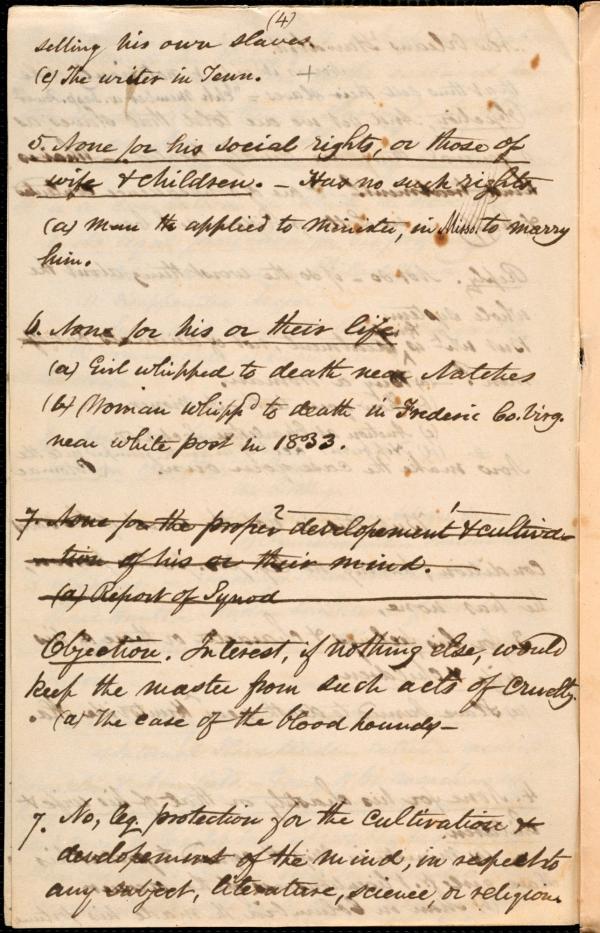 (4)
selling his own slaves.
(c) The writer in Tenn. +
5. None for his social rights, or those of
wife & children. – Has no such rights
(a) Man applied to minister, in Misso. to marry
him.
6. None for his or their life.
(a) Girl whipped to death near Natches
(b) Woman whippd to death in Frederic Co. Virg.
near white post in 1833.
7. None for the proper? developement & cultiva-
tion of his or their mind.
(a) Report of Synod
Objection. Interest, if nothing else, would
keep the master from such acts of cruelty.
(a) The case of the blood hounds –
7. No, leg. protection for the cultivation &
developement of the mind, in respect to
any subject, literature, science, or religion